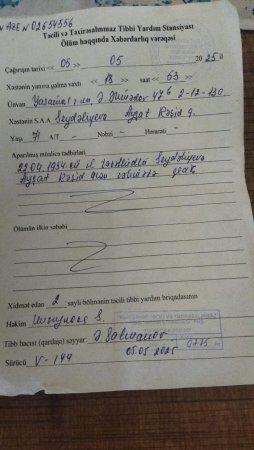 AZE N 02654556
Təcili və Təxirəsalınmaz Tibbi Yardım Stansiyası
Ölüm haqqında Xəbərdarlıq vərəqəsi
Çağırışın tarixi << 05 >> 05 2025
Xəstənin yanına gəlmə vaxtı << 13 >> saat << 63 >>
Ünvan Yasamal r-nu, 2-13-130
Xəstənin S.A.A Seydəliyeva Ayşat Rəşid q.
Yaşı 71 A/T - Nəbzi - Hərarəti -
Aparılmış müalicə tədbirləri
22.04.1954.cü il təvəllüdlü Seydəliyeva
Ayşat Rəşid qızı
Ölümün ilkin səbəbi
Xidmət edən 2 saylı bölmənin təcili tibbi yardım briqadasının
Həkim
Tibb bacısı (qardaşı) səyyar: Ə Salmanov
05.05.2025
Sürücü V-144